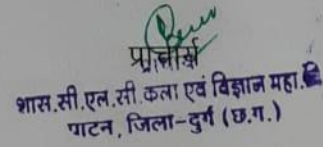 प्राचार्य
शास.सी.एल.सी.कला एवं विज्ञान महा.
पाटन, जिला-दुर्ग (छ.ग.)